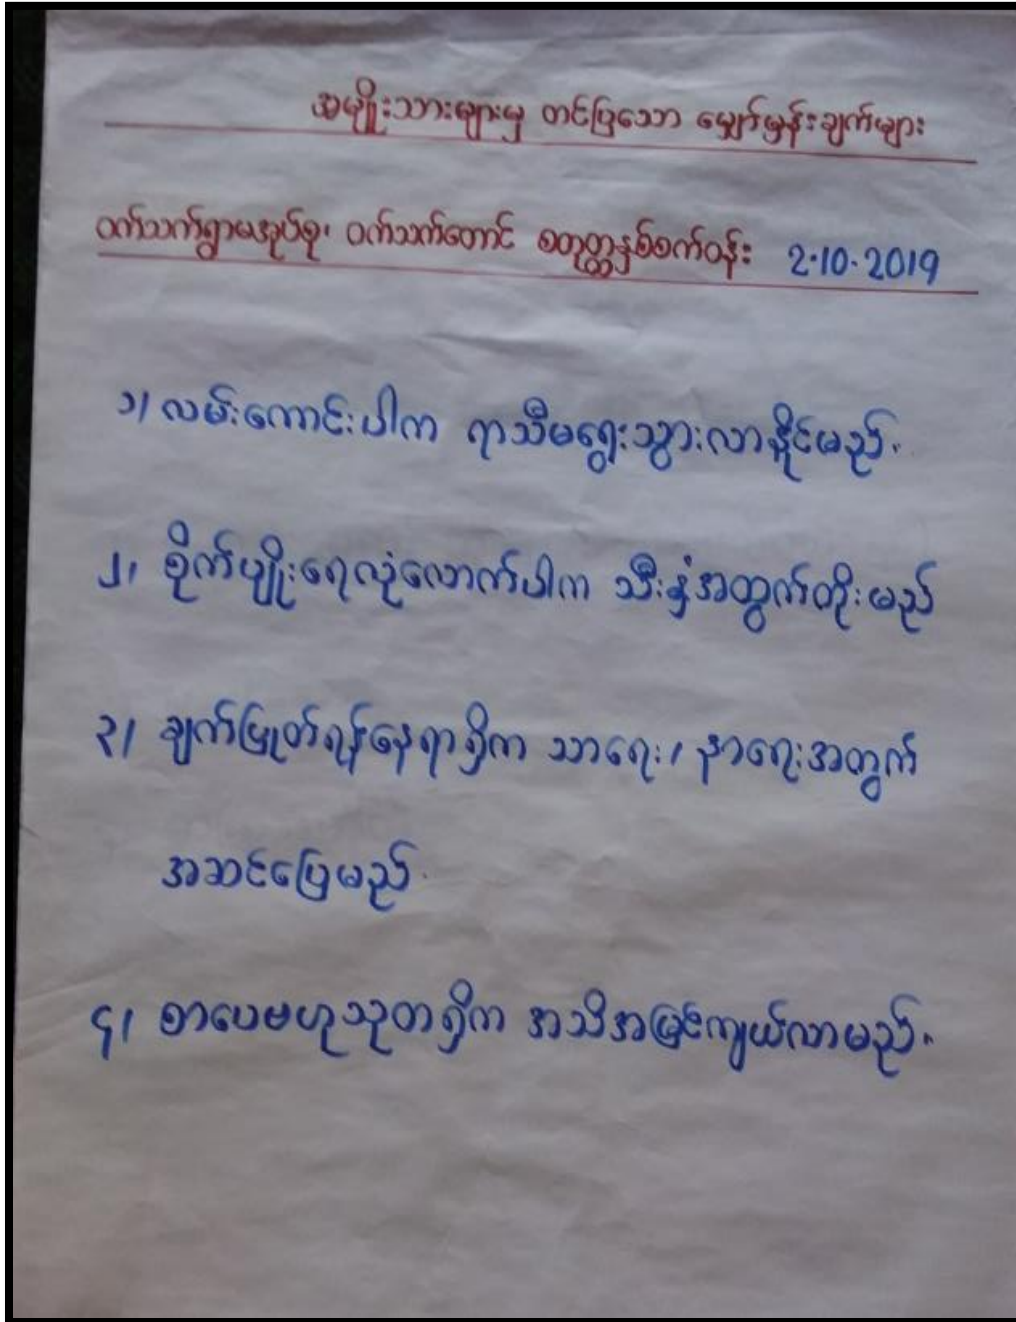 အမျိုးသားများမှ တင်ပြသော မျှော်မှန်းချက်များ
ဝက်သက်ရွာမအုပ်စု၊ ဝက်သက်တောင် စတုတ္ထနှစ်စက်ဝန်း 2.10.2019
၁/ လမ်းကောင်းပါက ရာသီမရွေးသွားလာနိုင်မည်.
၂၊ စိုက်ပျိုးရေလုံလောက်ပါက သီးနှံအထွက်တိုးမည်
၃/ ချက်ပြုတ်ရန်နေရာရှိက သာရေး၊ နာရေးအတွက်
အဆင်ပြေမည်.
၄၊ စာပေဗဟုသုတရှိက အသိအမြင်ကျယ်လာမည်.